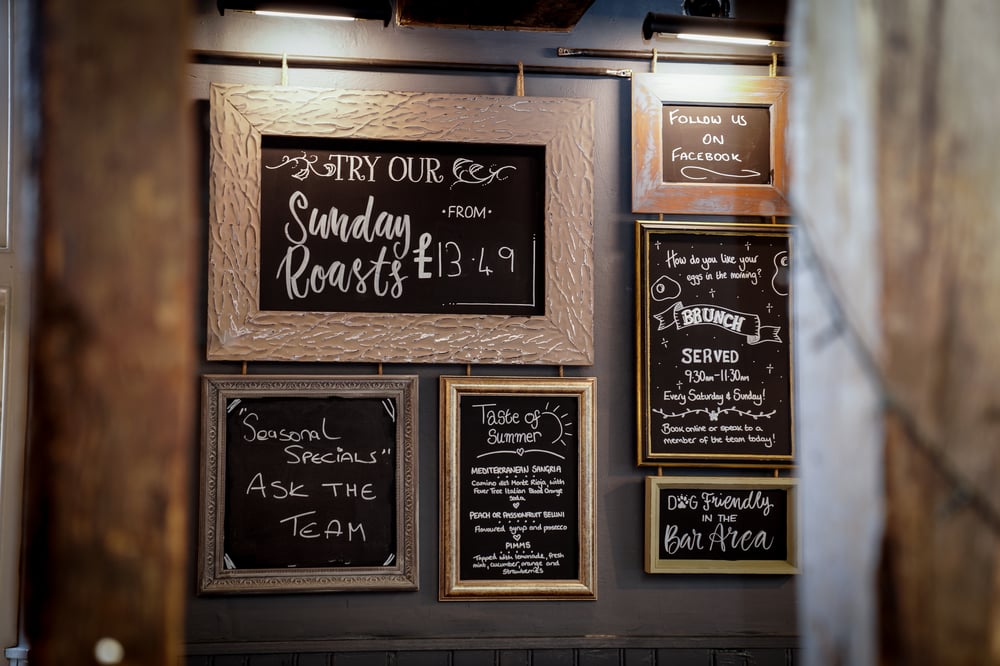 TRY OUR
Sunday
Roasts
·FROM·
£13.49
FOLLOW US
ON
FACEBOOK
How do you like your
eggs in the morning?
BRUNCH
SERVED
9:30am-11:30am
Every Saturday & Sunday!
Book online or speak to a
member of the team today!
"Seasonal
Specials"
ASK THE
TEAM
Taste of
Summer
MEDITERRANEAN SANGRIA
Camino del Monte Rioja, with
Fever Tree Italian Blood Orange
Soda
PEACH OR PASSIONFRUIT BELLINI
Flavoured syrup and prosecco
PIMMS
Topped with lemonade, fresh
mint, cucumber, orange and
strawberries
DOG Friendly
IN THE
Bar Area